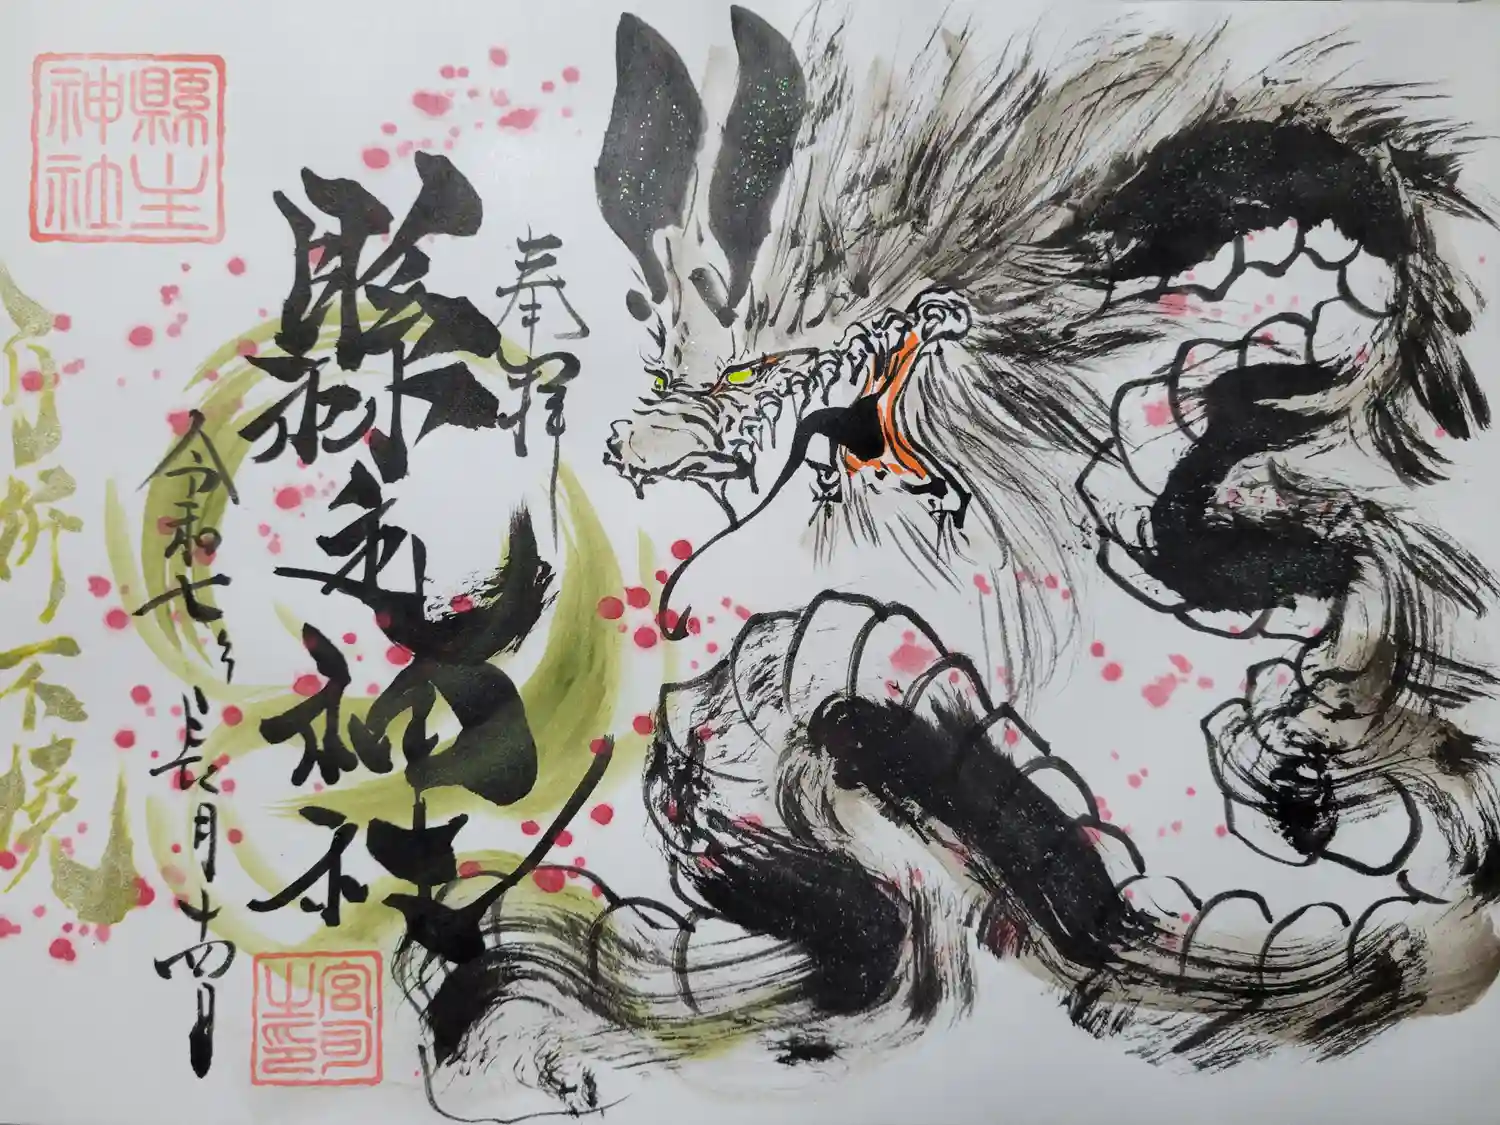 奉拝
縣主神社
令和七年長月十四日
百折不撓
縣主
神社
宮司
之印